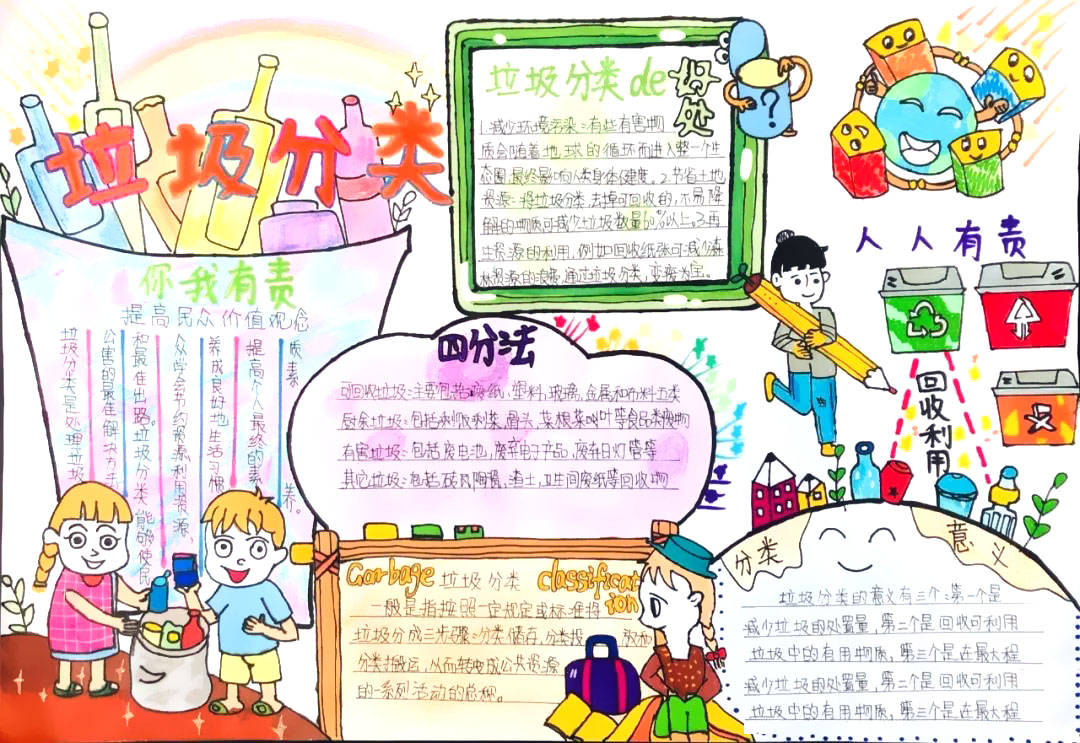 垃圾分类
你我有责
提高民众价值观念
垃圾分类是处理垃圾
公害的最佳解决方
和最佳出路。垃圾分类能够使民
众学会节约资源利用资源
养成良好地生活习惯
提高个人最终的素
质素养。
垃圾分类de好处
1.减少环境污染:有些有害物
质会随着地球的循环而进入整一个生
态圈,最终影响人类身体健康。2.节省土地
资源:将垃圾分类,去掉可回收的,不易降
解的物质可减少垃圾数量60%以上。3.再
生资源的利用,例如回收纸张可减少森
林资源的浪费,通过垃圾分类,变废为宝。
?
人人有责
回收利用
四分法
可回收垃圾:主要包括废纸,塑料,玻璃,金属和布料五类
厨余垃圾:包括剩饭剩菜,骨头,菜根菜叶等食品类废物
有害垃圾:包括废电池,废弃电子产品,废弃日灯管等
其它垃圾:包括砖瓦陶瓷,渣土,卫生间废纸等回收物
Garbage 垃圾分类 classification
一般是指按照一定规定或标准将
垃圾分成三步骤:分类储存,分类投
分类搬运,从而转变成公共资源
的一系列活动的总称。
分类意义
垃圾分类的意义有三个:第一个是
减少垃圾的处置量,第二个是回收可利用
垃圾中的有用物质,第三个是在最大程
减少垃圾的处置量,第二个是回收可利用
垃圾中的有用物质,第三个是在最大程